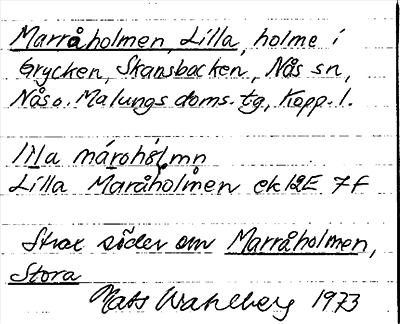 Marråholmen, Lilla, holme i
Grycken, Skansbacken, Nås sn,
Nås o. Malungs doms. tg, Kopp. l.
lıla mároho̜lmn
Lilla Maråholmen ek 12E 7f
Strax söder om Marråholmen,
Stora
Mats Wahlberg 1973